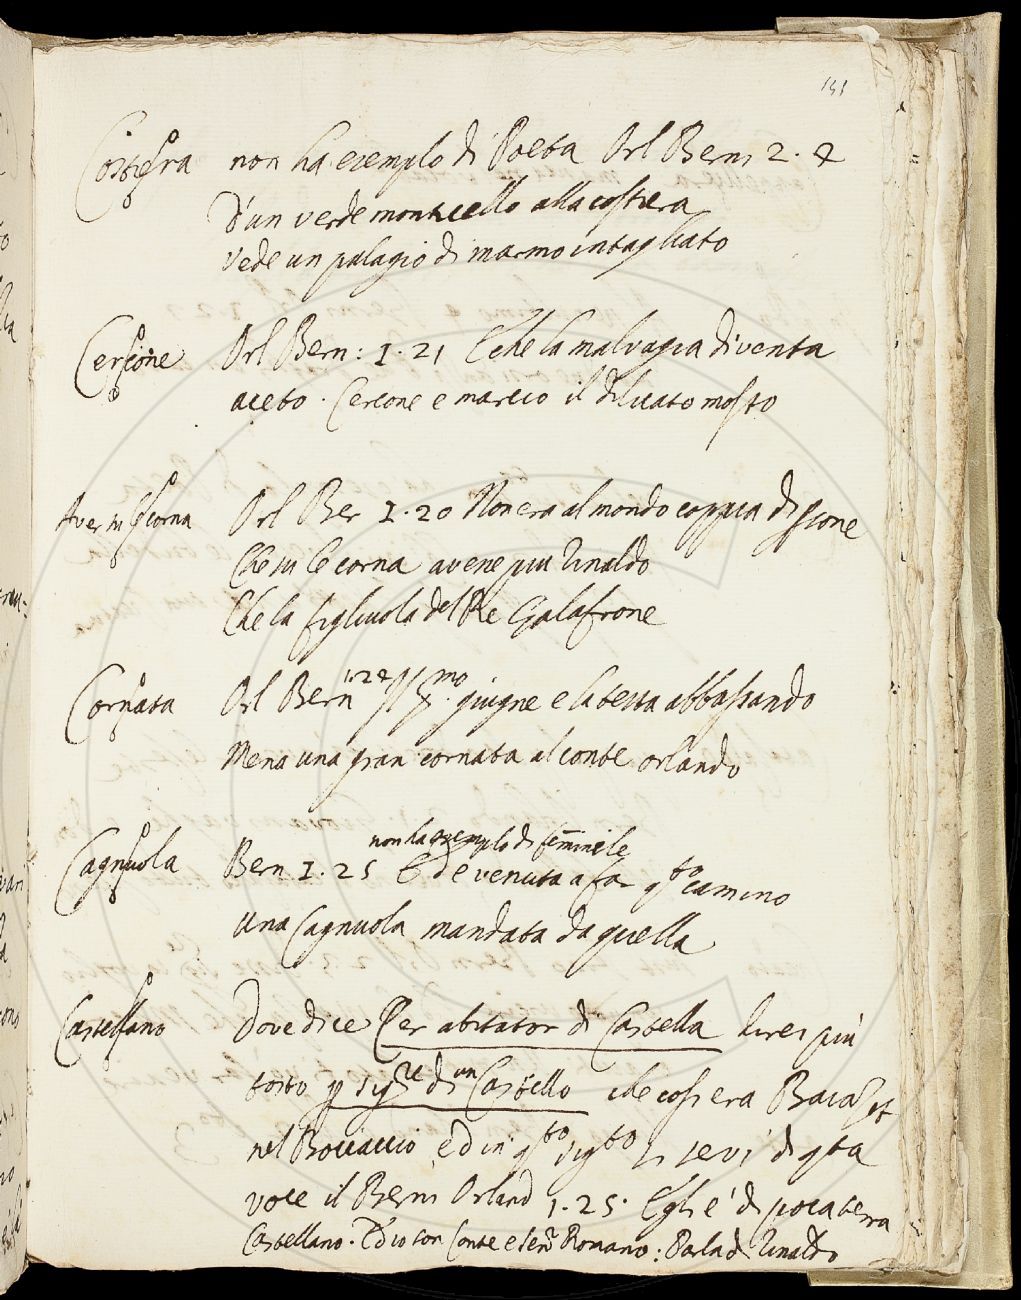 151
Costiera non ha esemplo di Poeta Orl Berni 2. 2
D'un verde monticello alla costiera
Vede un palagio di marmo intagliato
Cercone Orl Bern: 1. 21 E che la malvagia diventa
aceto. Cercone e marcio il dilicato mosto
Aver in su le corna Orl Ber 1. 20 Non era al mondo coppia di psone
Che su le corna avene piu Rinaldo
Che la figliuola del Re Galafrone
Cornata Orl Bern giugne e la testa abbassando
Mena una gran cornata al conte orlando
non ha esemplo di feminile
Cagnuola Bern 1. 25 Ed è venuta a far qto camino
Una Cagnuola mandata da quella
Castellano Dove dice Per abitator di Castella direi piu
tosto p sigre di un Castello che cosi era
nel Boccaccio ed in qto sigto si servi di qta
voce il Berni Orland 1. 25. Egli e' di poca terra
Castellano. Ed io son Conte e Senr Romano: Parla di Rinaldo